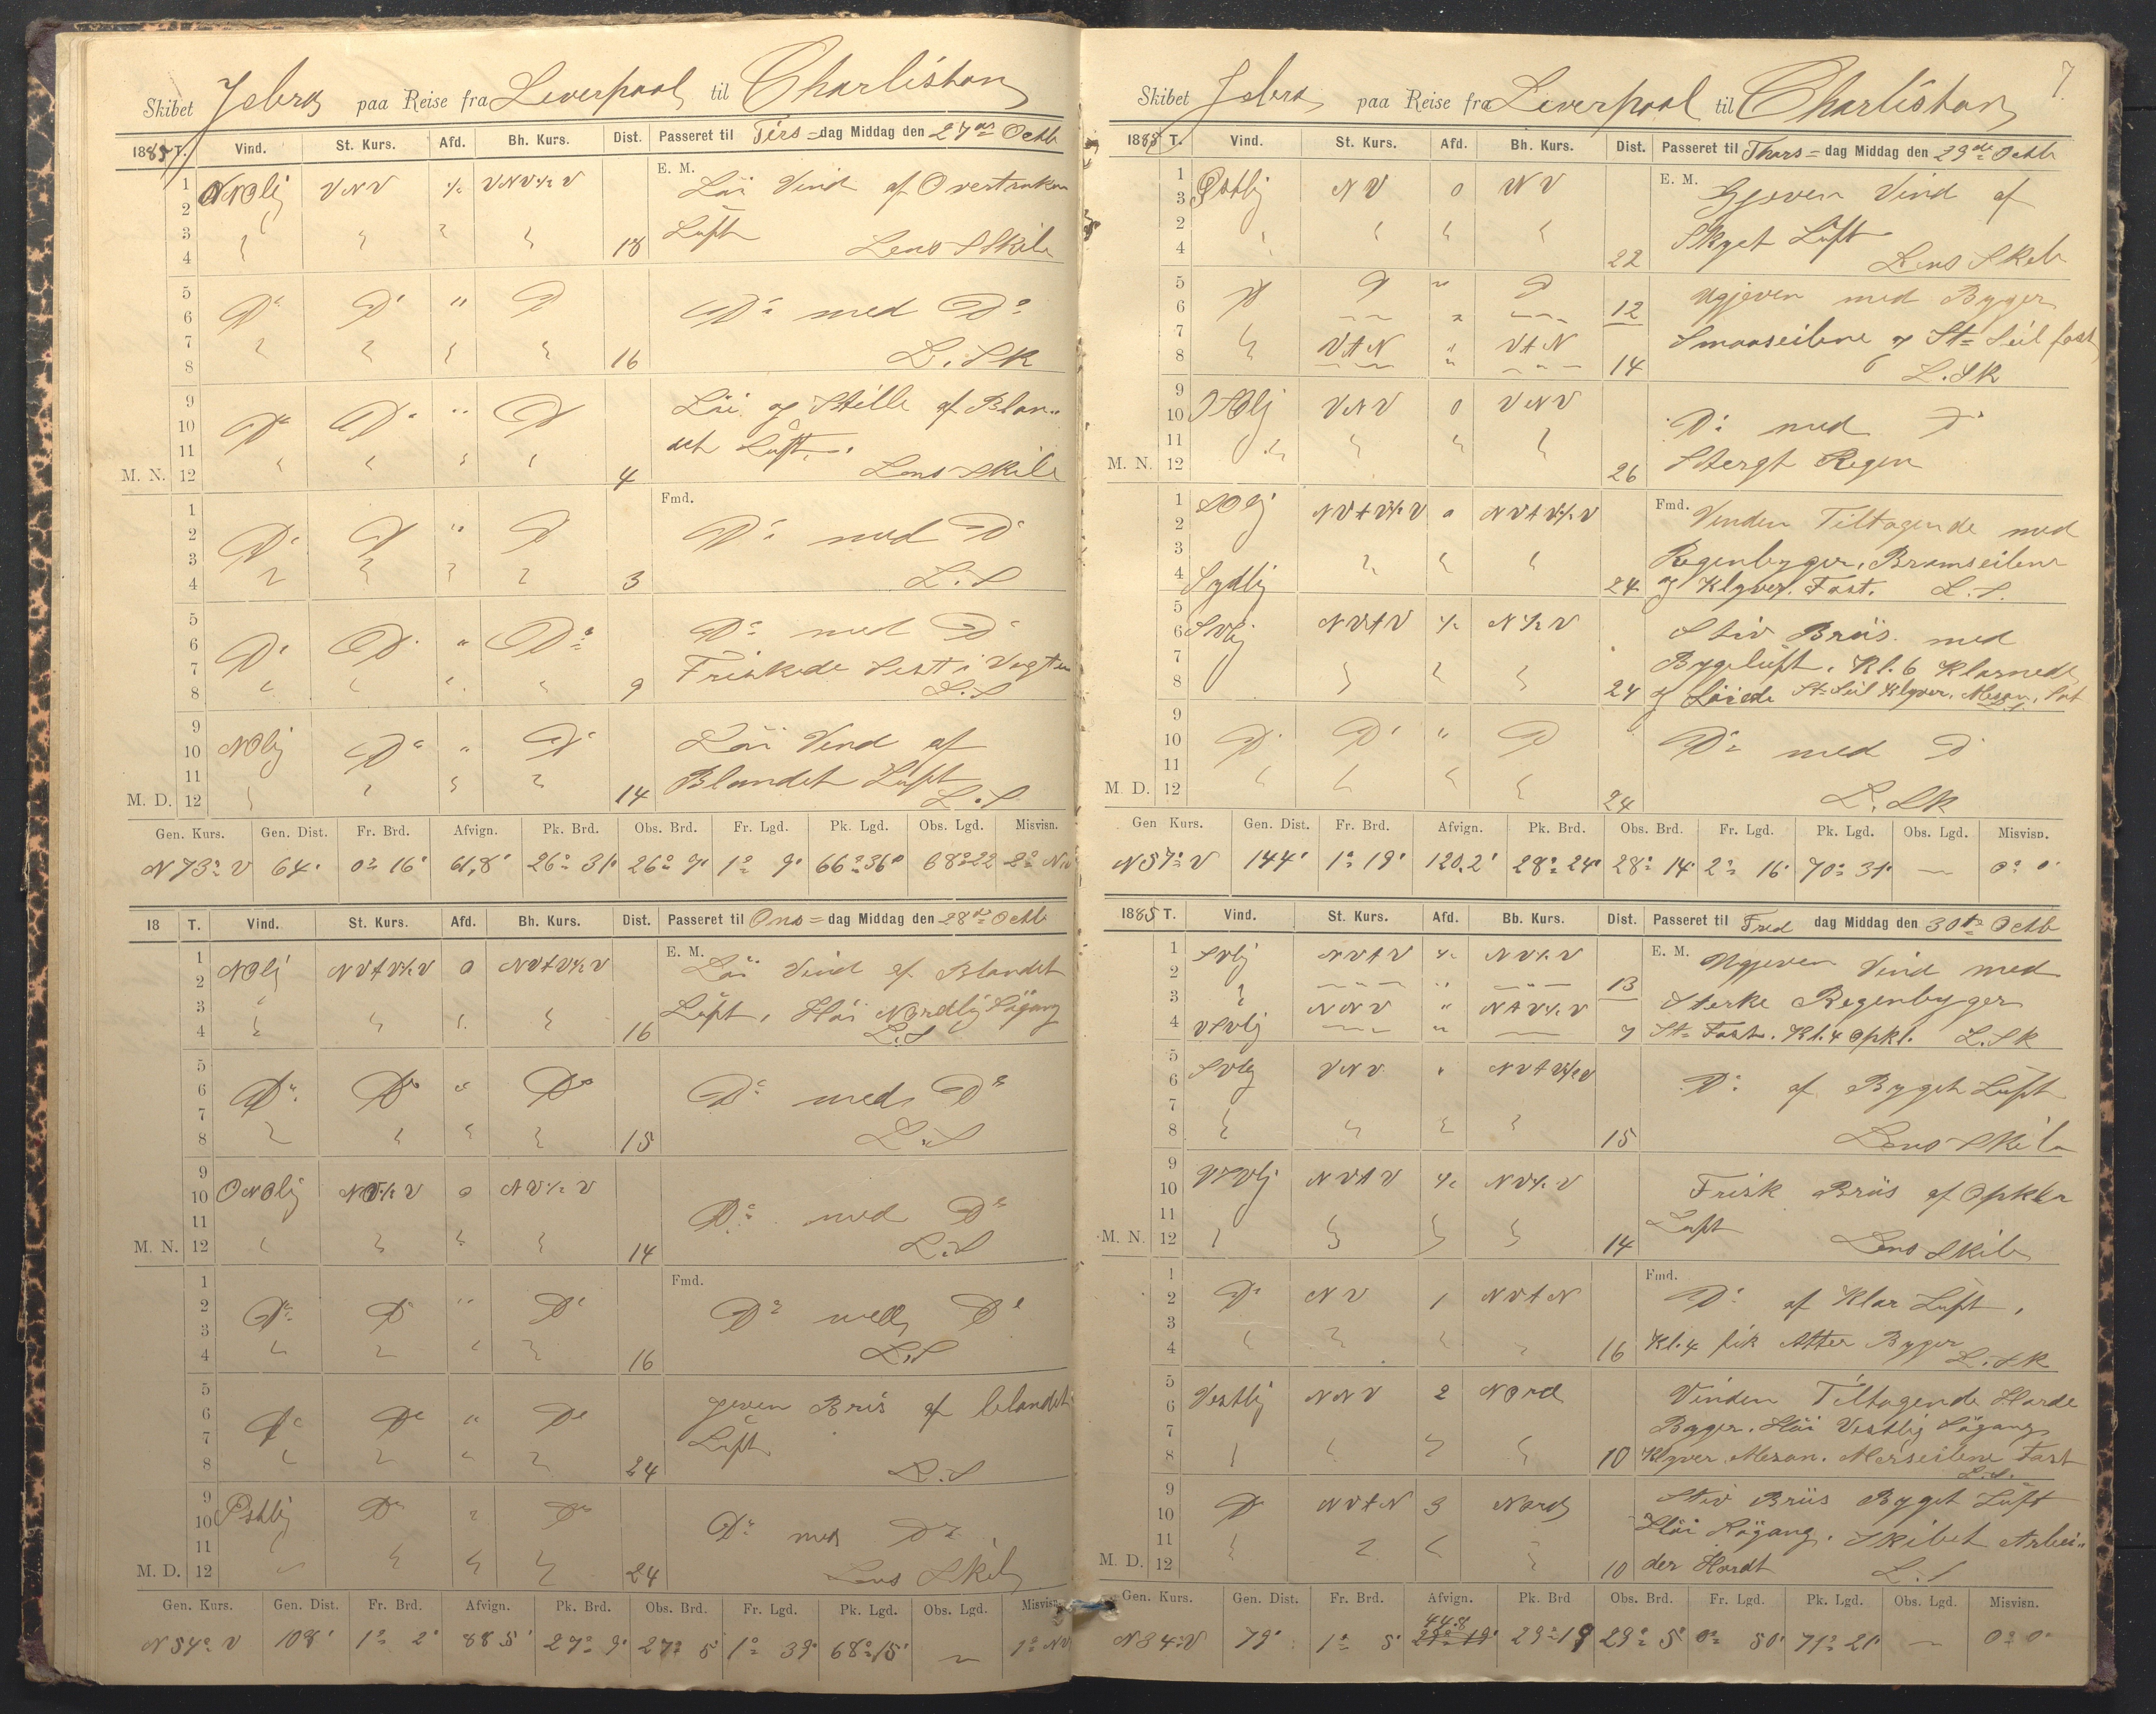 Skibet Jebra paa Reise fra Liverpool til Charlistan
1885 T. Vind. St. Kurs. Afd. Bh. Kurs. Dist. Passeret til Tirs=dag Middag den 27de Octb
1 NNOlj VNV ½ VNV½V E. M. Löi Vind af Overtrukn
2
3 Luft
4 18 Lens & Skibe
5
6 Do Do " D Do med Do
7
8 16 L. SK
9 Löi og Stille af Blan=
10 Do Do " D
11 det Luft.
M. N. 12 4 Lens Skibe
1 Fmd.
2 Do D " D Do med D
3
4 3 L. S
5
6 Do D " Do Do med D
7 Friskede Sist i Vagten
8 9 L. S
9
10 NOlj Do " Do Löi Vind af
11 Blandet Luft
M. D. 12 14 L. S
Gen. Kurs. Gen. Dist. Fr. Brd. Afvign. Pk. Brd. Obs. Brd. Fr. Lgd. Pk. Lgd. Obs. Lgd. Misvisn.
N 73° V 64' 0° 16' 61,8' 26° 31' 26° 9' 1° 9' 66° 36' 68° 22 2° NV
18 T. Vind. St. Kurs. Afd. Bh. Kurs. Dist. Passeret til Ons=dag Middag den 28de Octb
1 E. M. Löi Vind af Blandet
2 NOlj NVtV½V 0 NVtV½V
3 Luft, Höi Nordlig Sögang
4 16 L. S
5
6 Do Do " Do Do med Do
7
8 15 L. S
9
10 ONOlj NV½V 0 NV½V
11 Do med Do
M. N. 12 14 L. S
1 Fmd.
2 Do D " Do Do med Do
3
4 16 L. S
5 jeven Bris af blandet
6 Do Do " Do
7 Luft
8 24 L. S
9
10 Östlig Do Do Do med Do
11
M. D. 12 24 Lens Skibe
Gen. Kurs. Gen. Dist. Fr. Brd. Afvign. Pk. Brd. Obs. Brd. Fr. Lgd. Pk. Lgd. Obs. Lgd. Misvisn.
N 54° V 108' 1° 2' 88 5' 27° 9' 27° 5 1° 39' 68° 15' 1° NV
7.
Skibet Jebra paa Reise fra Liverpool til Charlistan
1885 T. Vind. St. Kurs. Afd. Bh. Kurs. Dist. Passeret til Thors=dag Middag den 29de Octb
1 E. M. Gjeven Vind af
3 Östlig NV 0 NV
2 Skyet Luft
4 22 Lens Skib
5 Ugjeven med Byger
6 D D " D 12
7 VtN " VtN Smaaseilene og St= Seil fast
8 14 L. SK
9
10 SOlj VNV 0 VNV Do med Do
11
M. N. 12 26 Stergt Regen
1 SOlj NVtV½V 0 NVtV½V Fmd. Vinden Tiltagende med
2
3 Regenbyger, Bramseilene
4 Sydlig 24 og Klyver. Fast. L. S.
5
6 SVlj NVtV ½ N½V Stiv Briis med
7 Bygeluft, Kl. 6 Klarnede
8 24 og Löiede St= Seil Klyver, Mesan, Sat
9
10 D Do " D Do med D
11
M. D. 12 24 L. SK
Gen Kurs. Gen. Dist. Fr. Brd. Afvign. Pk. Brd. Obs. Brd. Fr. Lgd. Pk. Lgd. Obs. Lgd. Misvisn.
N 57° V 144' 1° 19' 120.2' 28° 24' 28° 14' 2° 16' 70° 31' — 0° 0'
1885 T. Vind. St. Kurs. Afd. Bb. Kurs. Dist. Passeret til Fred dag Middag den 30te Octb
1 SVlj NVtV ½ NV½V E. M. Ugjeven Vind med
2 13
3 NNV " NtV½V Sterke Regenbyger
4 VSVlj 7 St= Fast. Kl. 4 opkl. L. SK
5 SVlj VNV NVtV½V
6 Do af Byget Luft
7
8 15 Lens Skib
9 VSVlj NVtV ½ NV½V
10 Frisk Briis af Opklar
11 Luft
M. N. 12 14 Lens Skib
1 Fmd.
2 Do NV 1 NVtN Do af Klar Luft,
3
4 16 Kl. 4 fik Atter Byger L. SK
5 Vinden Tiltagende Harde
6 Vestlig NNV 2 Nord
7 Byger. Höi Vestlig Sögang
8 10 Klyver. Mesan. Merseilene Fast L. S.
9 Stiv Briis Byget Luft
10 D NVtN 3 Nord
11 Höi Sögang. Skibet Arbei=
M. D. 12 10 der Hardt L. S
Gen. Kurs. Gen. Dist. Fr. Brd. Afvign. Pk. Brd Obs. Brd. Fr. Lgd. Pk. Lgd. Obs. Lgd. Misvisn.
N 34° V 79' 1° 5' 44.8 29° 19 29° 5' 0° 50' 71° 21' — 0° 0'